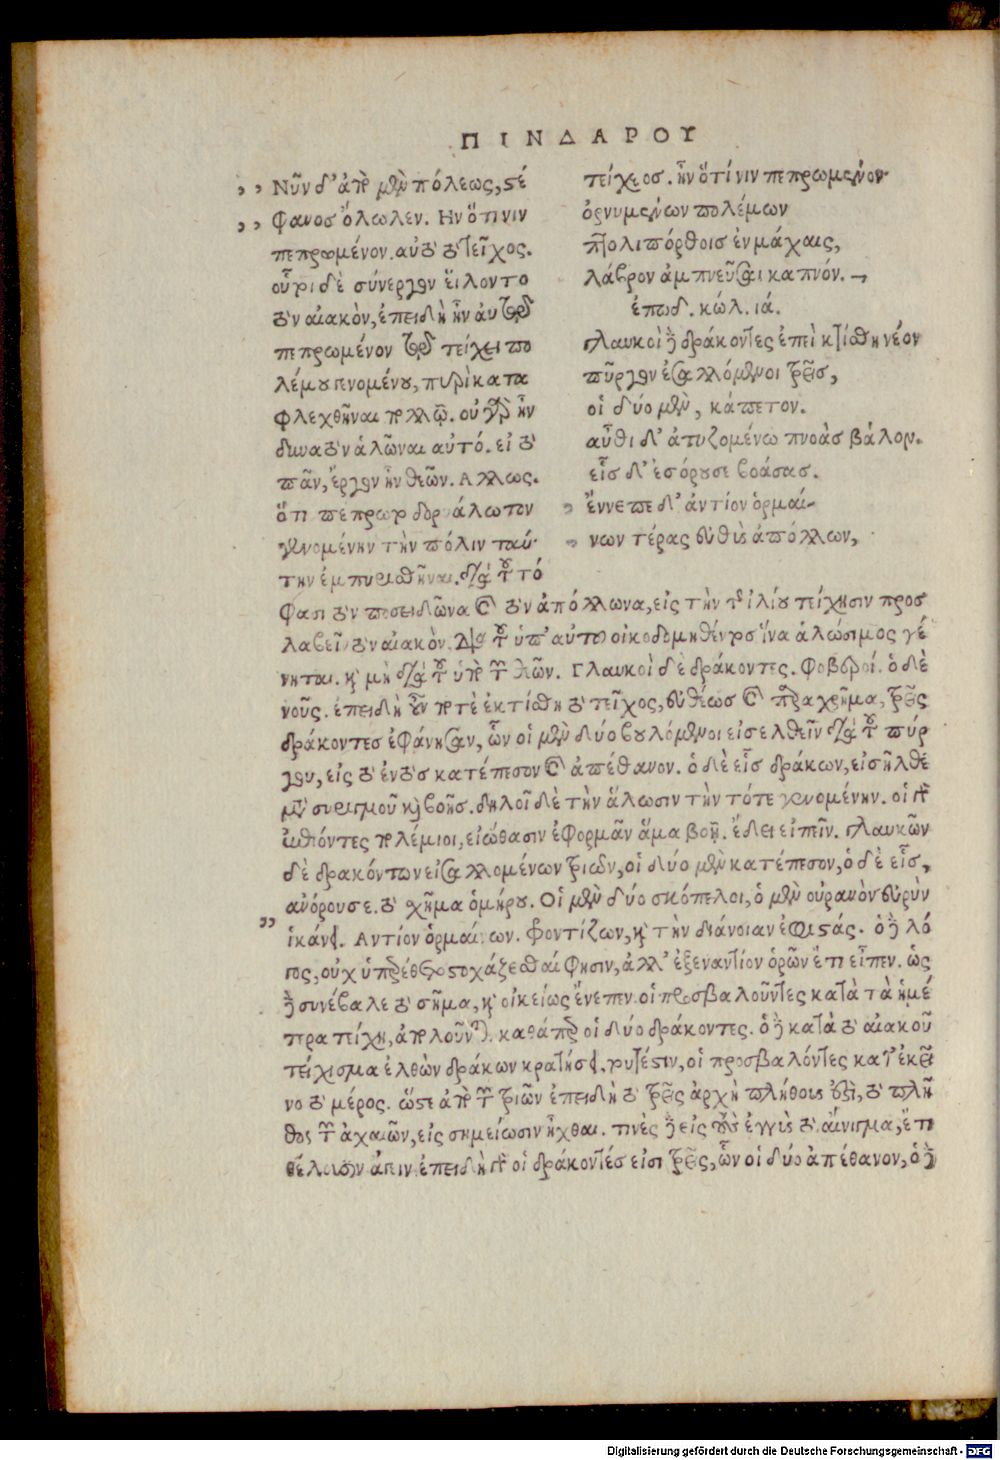 ΠΙΝΔΑΡΟΥ
Νῦν δ' ἀπὸ μὲν πόλεως, στέ
φανος ὄλωλεν. Ην ὅτι νιν
πεπρωμένον. αὐτὸ τὸ τεῖχος.
οὗτοι δὲ σύνεργον εἵλοντο
τὸν αἰακὸν, ἐπειδὴ ἦν αὐτῷ
πεπρωμένον τῷ τείχει πο
λέμου γενομένου, πυρὶ κατα
φλεχθῆναι πολλῷ. οὐ γὰρ ἦν
δυνατὸν ἁλῶναι αὐτό. εἰ τὸ
πᾶν, ἔργον ἦν θεῶν. Αλλως.
ὅτι πέπρωτο δορυάλωτον
γενομένην τὴν πόλιν ταύ
την ἐμπυρισθῆναι. διὰ τοῦτό
τείχεος. ἦν ὅτί νιν πεπρωμένον
ὀρνυμένων πολέμων
πτολιπόρθοις ἐν μάχαις,
λάβρον ἀμπνεῦσαι καπνόν.
ἐπωδ. κώλ. ιά.
γλαυκοὶ δὲ δράκοντες ἐπεὶ κτίσθη νέον
πῦργον ἐσαλλόμενοι τρεῖς,
οἱ δύο μὲν, κάπετον.
αὖθι δ' ἀτυζομένω πνοὰς βάλον.
εἷς δ' ἐσόρουσε βοάσας.
ἔννεπε δ' ἀντίον ὁρμαί-
νων τέρας εὐθὺς ἀπόλλων,
φασι τὸν ποσειδῶνα καὶ τὸν ἀπόλλωνα, εἰς τὴν τοῦ ἰλίου τείχισιν προσ
λαβεῖν τὸν αἰακὸν. διὰ τοῦτο ὑπ' αὐτοῦ οἰκοδομηθέντος ἵνα ἁλώσιμος γέ
νηται. καὶ μὴ διὰ τοῦτο ὑπὸ τῶν θεῶν. Γλαυκοὶ δὲ δράκοντες. Φοβεροί. ὁ δὲ
νοῦς. ἐπειδὴ οὖν ποτὲ ἐκτίσθη τὸ τεῖχος, εὐθέως καὶ παραχρῆμα, τρεῖς
δράκοντες ἐφάνησαν, ὧν οἱ μὲν δύο βουλόμενοι εἰσελθεῖν διὰ τοῦ πύρ
γου, εἰς τὸ ἐντὸς κατέπεσον καὶ ἀπέθανον. ὁ δὲ εἷς δράκων, εἰσῆλθε
μετὰ συρισμοῦ καὶ βοῆς. δηλοῖ δὲ τὴν ἅλωσιν τὴν τότε γενομένην. οἱ γὰρ
ἐπιόντες πολέμιοι, εἰώθασιν ἐφορμᾶν ἅμα βοῇ. ἔδει εἰπεῖν. γλαυκῶν
δὲ δρακόντων εἰσαλλομένων τριῶν, οἱ δύο μὲν κατέπεσον, ὁ δὲ εἷς,
ἀνόρουσε. τὸ σχῆμα ὁμήρου. Οἱ μὲν δύο σκόπελοι, ὁ μὲν οὐρανὸν εὐρὺν
ἱκάνει. Αντίον ὁρμαίνων. φροντίζων, καὶ τὴν διάνοιαν ἐφιστάς. ὁ δὲ λό
γος, οὐχ ὑπερέθετο στοχάζεσθαί φησιν, ἀλλ' ἐξεναντίον ὁρῶν ἔτι εἶπεν. ὡς
δὲ συνέβαλε τὸ σῆμα, καὶ οἰκείως ἔνεπεν. οἱ προσβαλοῦντες κατὰ τὰ ἡμέ
τερα τείχη, ἀπολοῦνται. καθάπερ οἱ δύο δράκοντες. ὁ δὲ κατὰ τὸ αἰακοῦ
τείχισμα ἐλθὼν δράκων κρατήσει, τουτέστιν, οἱ προσβαλόντες κατ' ἐκεῖ
νο τὸ μέρος. ὥστε ἀπὸ τῶν τριῶν ἐπειδὴ τὸ τρεῖς ἀρχὴ πλήθους ἐστὶ, τὸ πλῆ
θος τῶν ἀχαιῶν, εἰς σημείωσιν ἦχθαι. τινὲς δὲ εἰς τοὺς ἐγγὺς τὸ αἴνιγμα, ἔτι
θέλουσιν ἄγειν ἐπειδὴ γὰρ οἱ δράκοντές εἰσι τρεῖς, ὧν οἱ δύο ἀπέθανον, ὁ δὲ
Digitalisierung gefördert durch die Deutsche Forschungsgemeinschaft - DFG